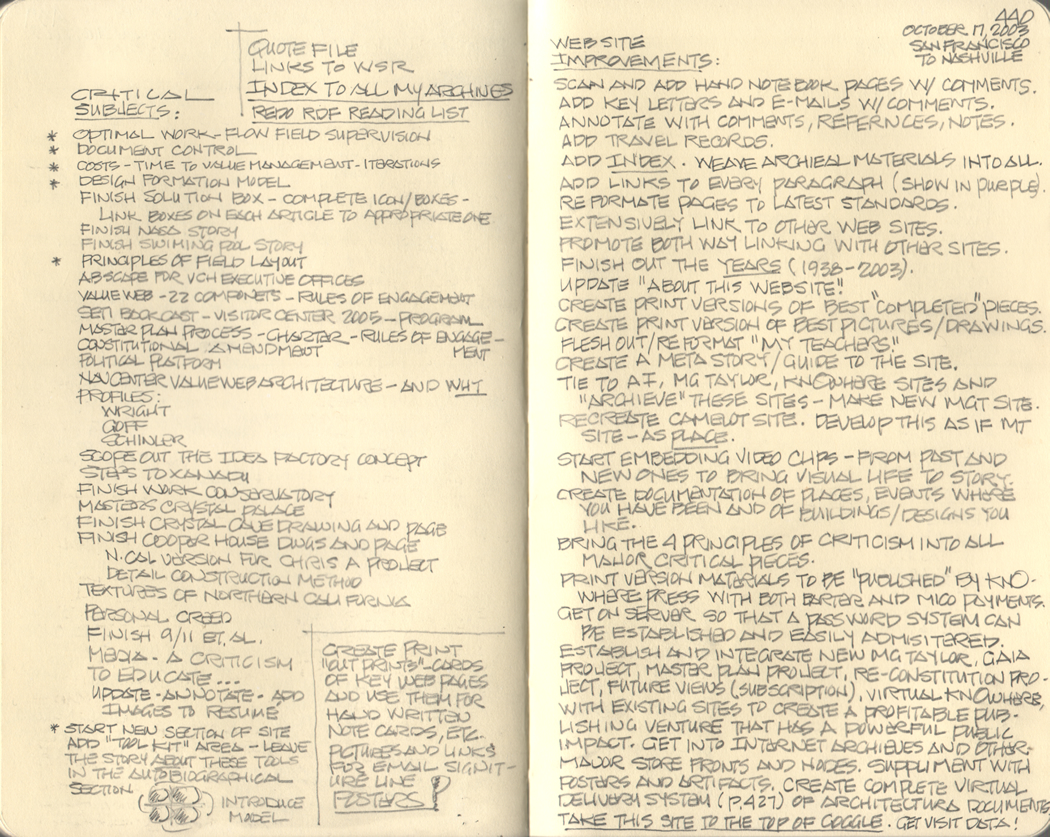 QUOTE FILE
LINKS TO WSR
INDEX TO ALL MY ARCHIVES
REDO RDF READING LIST
CRITICAL
SUBJECTS:
* OPTIMAL WORK-FLOW FIELD SUPERVISION
* DOCUMENT CONTROL
* COSTS - TIME TO VALUE MANAGEMENT - ITERATIONS
* DESIGN FORMATION MODEL
FINISH SOLUTION BOX - COMPLETE ICON/BOXES -
LINK BOXES ON EACH ARTICLE TO APPROPRIATE ONE
FINISH NASA STORY
FINISH SWIMING POOL STORY
* PRINCIPLES OF FIELD LAYOUT
ABSCAPE FOR VCH EXECUTIVE OFFICES
VALUE WEB - 22 COMPONETS - RULES OF ENGAGEMENT
SETI BACKCAST - VISITOR CENTER 2005 - PROGRAM
MASTER PLAN PROCESS - CHARTER - RULES OF ENGAGE-
MENT
CONSTITUTIONAL AMENDMENT
POLITICAL PLATFORM
NAVCENTER VALUE WEB ARCHITECTURE - AND WHY
PROFILES:
WRIGHT
GOFF
SCHINLER
SCOPE OUT THE IDEA FACTORY CONCEPT
STEPS TO XANADU
FINISH WORK CONSERVATORY
MASTERS CRYSTAL PALACE
FINISH CRYSTAL CAVE DRAWING AND PAGE
FINISH COOPER HOUSE DWGS AND PAGE
N.CAL VERSION FOR CHRIS A PROJECT
DETAIL CONSTRUCTION METHOD
TEXTURES OF NORTHERN CALIFORNIA
PERSONAL CREED
FINISH 9/11 ET. AL.
MEDIA - A CRITICISM
TO EDUCATE...
UPDATE - ANNOTATE - ADD
IMAGES TO RESUME
* START NEW SECTION OF SITE
ADD "TOOL KIT" AREA - LEAVE
THE STORY ABOUT THESE TOOLS
IN THE AUTOBIOGRAPHICAL
SECTION
INTRODUCE
MODEL
CREATE PRINT
"OUT PRINTS" - CARDS
OF KEY WEB PAGES
AND USE THEM FOR
HAND WRITTEN
NOTE CARDS, ETC.
PICTURES AND LINKS
FOR EMAIL SIGNIT-
URE LINE
POSTERS
440
OCTOBER 17, 2003
SAN FRANCISCO
TO NASHVILLE
WEB SITE
IMPROVEMENTS:
SCAN AND ADD HAND NOTEBOOK PAGES W/ COMMENTS.
ADD KEY LETTERS AND E-MAILS W/ COMMENTS.
ANNOTATE WITH COMMENTS, REFERNCES, NOTES.
ADD TRAVEL RECORDS.
ADD INDEX. WEAVE ARCHIEAL MATERIALS INTO ALL.
ADD LINKS TO EVERY PARAGRAPH (SHOW IN PURPLE).
REFORMATE PAGES TO LATEST STANDARDS.
EXTENSIVELY LINK TO OTHER WEB SITES.
PROMOTE BOTH WAY LINKING WITH OTHER SITES.
FINISH OUT THE YEARS (1938-2003).
UPDATE "ABOUT THIS WEBSITE"
CREATE PRINT VERSIONS OF BEST "COMPLETED" PIECES.
CREATE PRINT VERSION OF BEST PICTURES/DRAWINGS.
FLESH OUT/REFORMAT "MY TEACHERS"
CREATE A META STORY/GUIDE TO THE SITE.
TIE TO AI, MG TAYLOR, KNOWHERE SITES AND
"ARCHIEVE" THESE SITES - MAKE NEW MGT SITE.
RECREATE CAMELOT SITE. DEVELOP THIS AS IF MT
SITE - AS PLACE.
START EMBEDDING VIDEO CLIPS - FROM PAST AND
NEW ONES TO BRING VISUAL LIFE TO STORY.
CREATE DOCUMENTATION OF PLACES, EVENTS WHERE
YOU HAVE BEEN AND OF BUILDINGS/DESIGNS YOU
LIKE.
BRING THE 4 PRINCIPLES OF CRITICISM INTO ALL
MAJOR CRITICAL PIECES.
PRINT VERSION MATERIALS TO BE "PUBLISHED" BY KNO-
WHERE PRESS WITH BOTH BARTER AND MICO PAYMENTS.
GET ON SERVER SO THAT A PASSWORD SYSTEM CAN
BE ESTABLISHED AND EASILY ADMISITERED.
ESTABLISH AND INTEGRATE NEW MG TAYLOR, GAIA
PROJECT, MASTER PLAN PROJECT, RE-CONSTITUTION PRO-
JECT, FUTURE VIEWS (SUBSCRIPTION), VIRTUAL KNOWHERE,
WITH EXISTING SITES TO CREATE A PROFITABLE PUB-
LISHING VENTURE THAT HAS A POWERFUL PUBLIC
IMPACT. GET INTO INTERNET ARCHIEVES AND OTHER
MAJOR STORE FRONTS AND NODES. SUPPLIMENT WITH
POSTERS AND ARTIFACTS. CREATE COMPLETE VIRTUAL
DELIVERY SYSTEM (P.427) OF ARCHITECTURA DOCUMENTS
TAKE THIS SITE TO THE TOP OF GOGGLE. GET VISIT DATA!